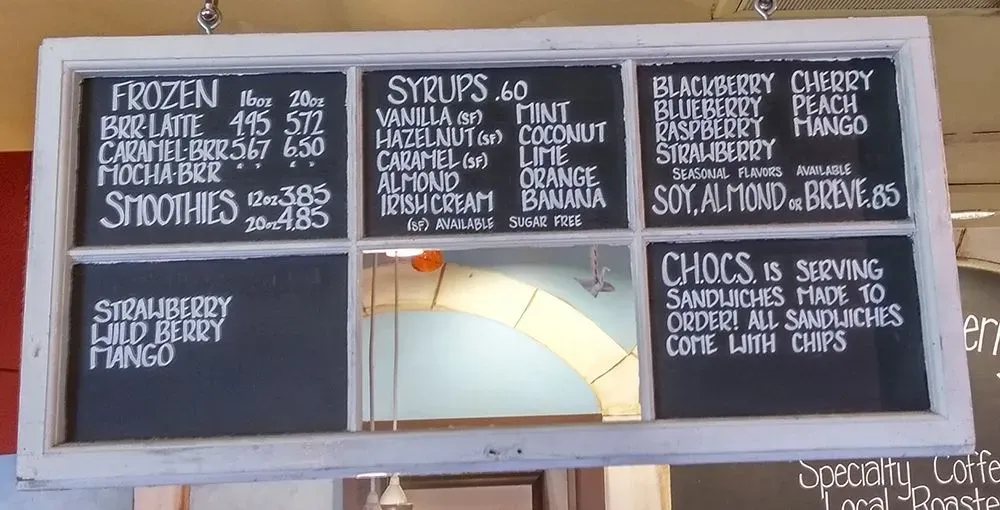 FROZEN 16oz 20oz
BRR-LATTE 4.95 5.72
CARAMEL-BRR 5.67 6.50
MOCHA-BRR " "
SMOOTHIES 12oz 3.85
20oz 4.85
SYRUPS .60
VANILLA (SF) MINT
HAZELNUT (SF) COCONUT
CARAMEL (SF) LIME
ALMOND ORANGE
IRISH CREAM BANANA
(SF) AVAILABLE SUGAR FREE
BLACKBERRY CHERRY
BLUEBERRY PEACH
RASPBERRY MANGO
STRAWBERRY
SEASONAL FLAVORS AVAILABLE
SOY, ALMOND OR BREVE .85
STRAWBERRY
WILD BERRY
MANGO
C.H.O.C.S. IS SERVING
SANDWICHES MADE TO
ORDER! ALL SANDWICHES
COME WITH CHIPS
Specialty
Local